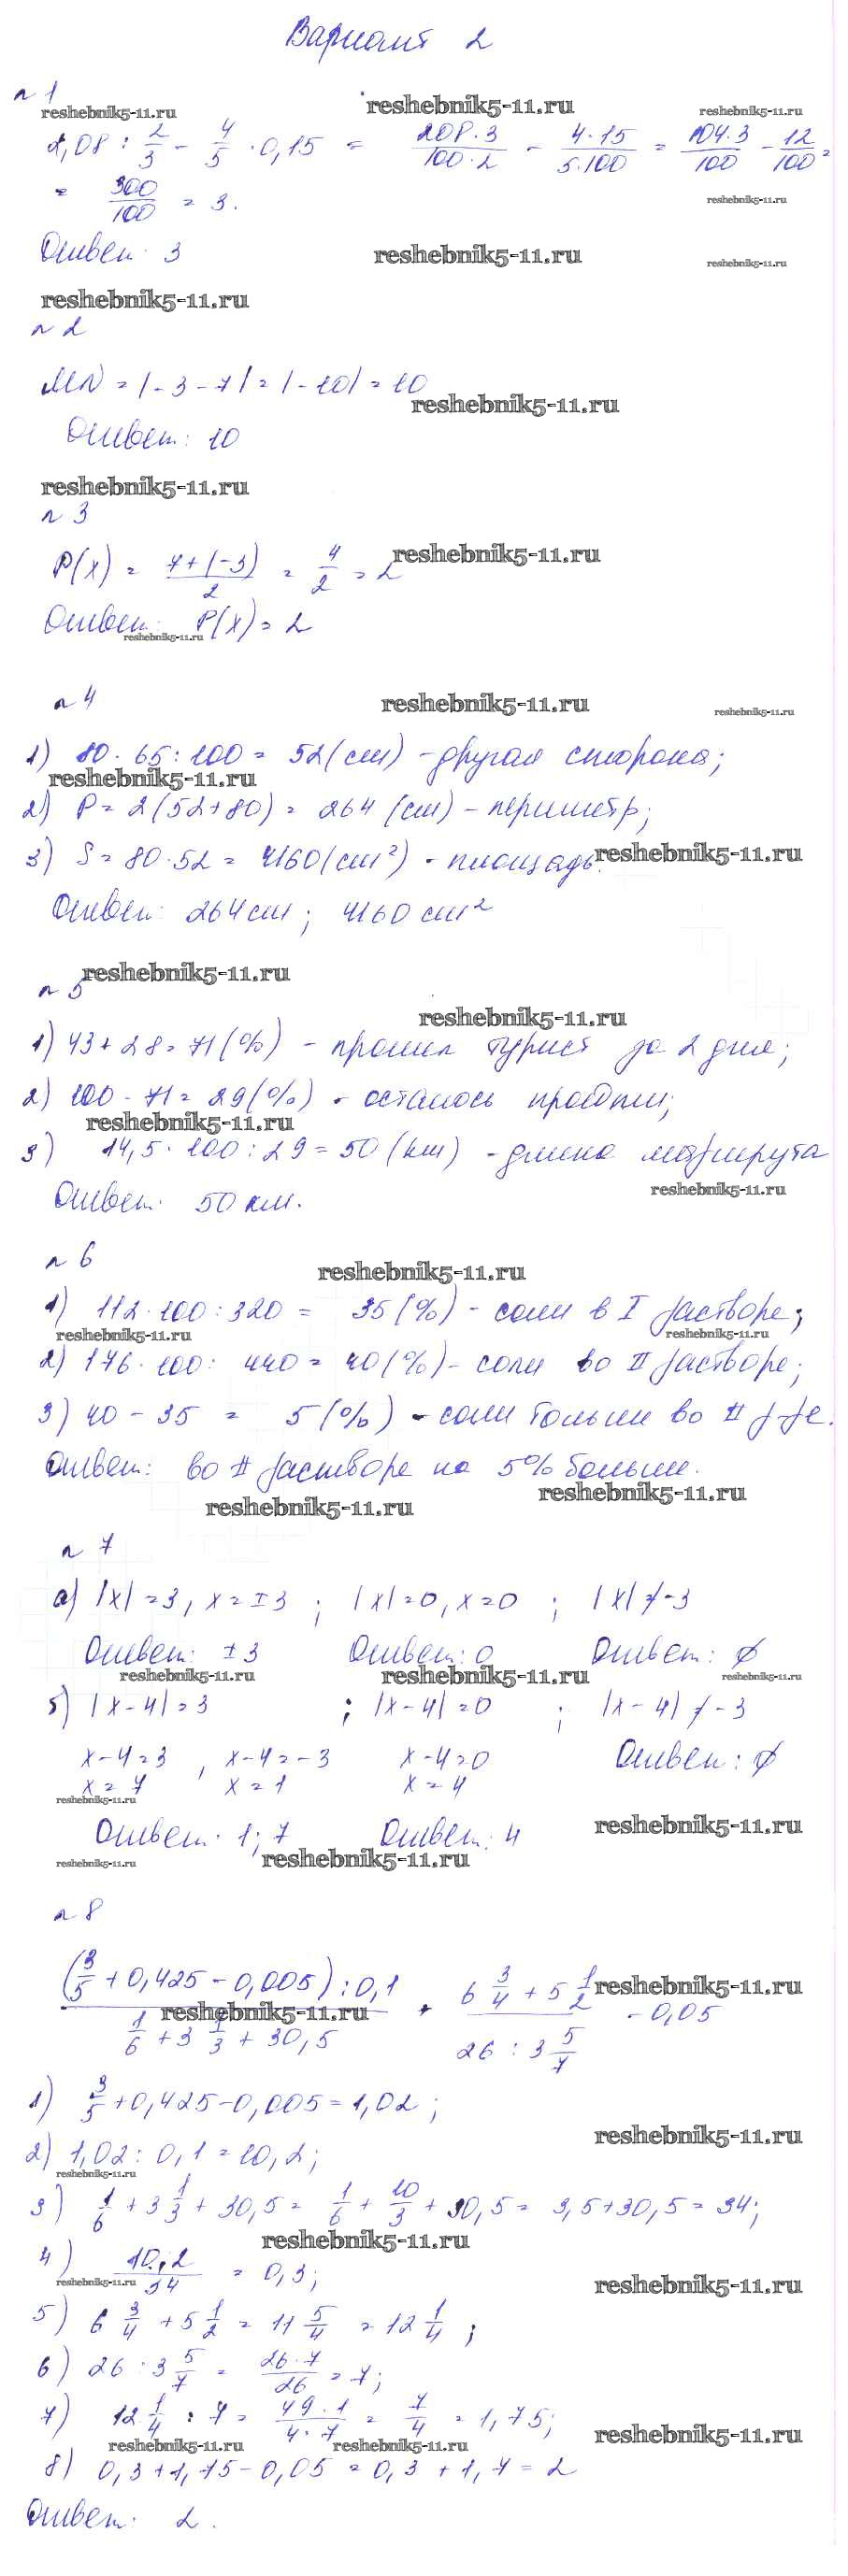 Вариант 2
№ 1
reshebnik5-11.ru reshebnik5-11.ru reshebnik5-11.ru
2,08 : 2/3 - 4/5 · 0,15 = 208·3/100·2 - 4·15/5·100 = 104·3/100 - 12/100 =
= 300/100 = 3.
reshebnik5-11.ru
Ответ: 3
reshebnik5-11.ru reshebnik5-11.ru
reshebnik5-11.ru
№ 2
MN = |-3-7| = |-10| = 10
reshebnik5-11.ru
Ответ: 10
reshebnik5-11.ru
№ 3
P(x) = 7+(-3)/2 = 4/2 = 2
reshebnik5-11.ru
Ответ: P(x) = 2
reshebnik5-11.ru
№ 4
reshebnik5-11.ru reshebnik5-11.ru
1) 80 · 65 : 100 = 52 (см) - другая сторона;
reshebnik5-11.ru
2) P = 2(52+80) = 264 (см) - периметр;
3) S = 80·52 = 4160 (см²) - площадь.
reshebnik5-11.ru
Ответ: 264 см; 4160 см²
reshebnik5-11.ru
№ 5
reshebnik5-11.ru
1) 43 + 28 = 71 (%) - прошел турист за 2 дня;
2) 100 - 71 = 29 (%) - осталось пройти;
reshebnik5-11.ru
3) 14,5 · 100 : 29 = 50 (км) - длина маршрута
reshebnik5-11.ru
Ответ: 50 км.
№ 6
reshebnik5-11.ru
1) 112·100 : 320 = 35 (%) - соли в I растворе;
reshebnik5-11.ru reshebnik5-11.ru
2) 176·100 : 440 = 40 (%) - соли во II растворе;
3) 40 - 35 = 5 (%) - соли больше во II р-ре.
Ответ: во II растворе на 5% больше.
reshebnik5-11.ru reshebnik5-11.ru
№ 7
а) |x| = 3, x = ±3 ; |x| = 0, x = 0 ; |x| ≠ -3
Ответ: ±3 Ответ: 0 Ответ: ∅
reshebnik5-11.ru reshebnik5-11.ru reshebnik5-11.ru
б) |x-4| = 3 ; |x-4| = 0 ; |x-4| ≠ -3
x-4=3 , x-4=-3 x-4=0 Ответ: ∅
x = 7 x = 1 x = 4
reshebnik5-11.ru
Ответ: 1; 7 Ответ: 4
reshebnik5-11.ru
reshebnik5-11.ru reshebnik5-11.ru
№ 8
(3/5 + 0,425 - 0,005) : 0,1 / 1/6 + 3 1/3 + 30,5 + 6 3/4 + 5 1/2 / 26 : 3 5/7 - 0,05
reshebnik5-11.ru reshebnik5-11.ru
1) 3/5 + 0,425 - 0,005 = 1,02;
reshebnik5-11.ru
2) 1,02 : 0,1 = 10,2;
reshebnik5-11.ru
3) 1/6 + 3 1/3 + 30,5 = 1/6 + 10/3 + 30,5 = 3,5 + 30,5 = 34;
reshebnik5-11.ru
4) 10,2/34 = 0,3;
reshebnik5-11.ru reshebnik5-11.ru
5) 6 3/4 + 5 1/2 = 11 5/4 = 12 1/4 ;
6) 26 : 3 5/7 = 26·7/26 = 7;
7) 12 1/4 : 7 = 49·1/4·7 = 7/4 = 1,75;
reshebnik5-11.ru reshebnik5-11.ru reshebnik5-11.ru
8) 0,3 + 1,75 - 0,05 = 0,3 + 1,7 = 2
Ответ: 2.